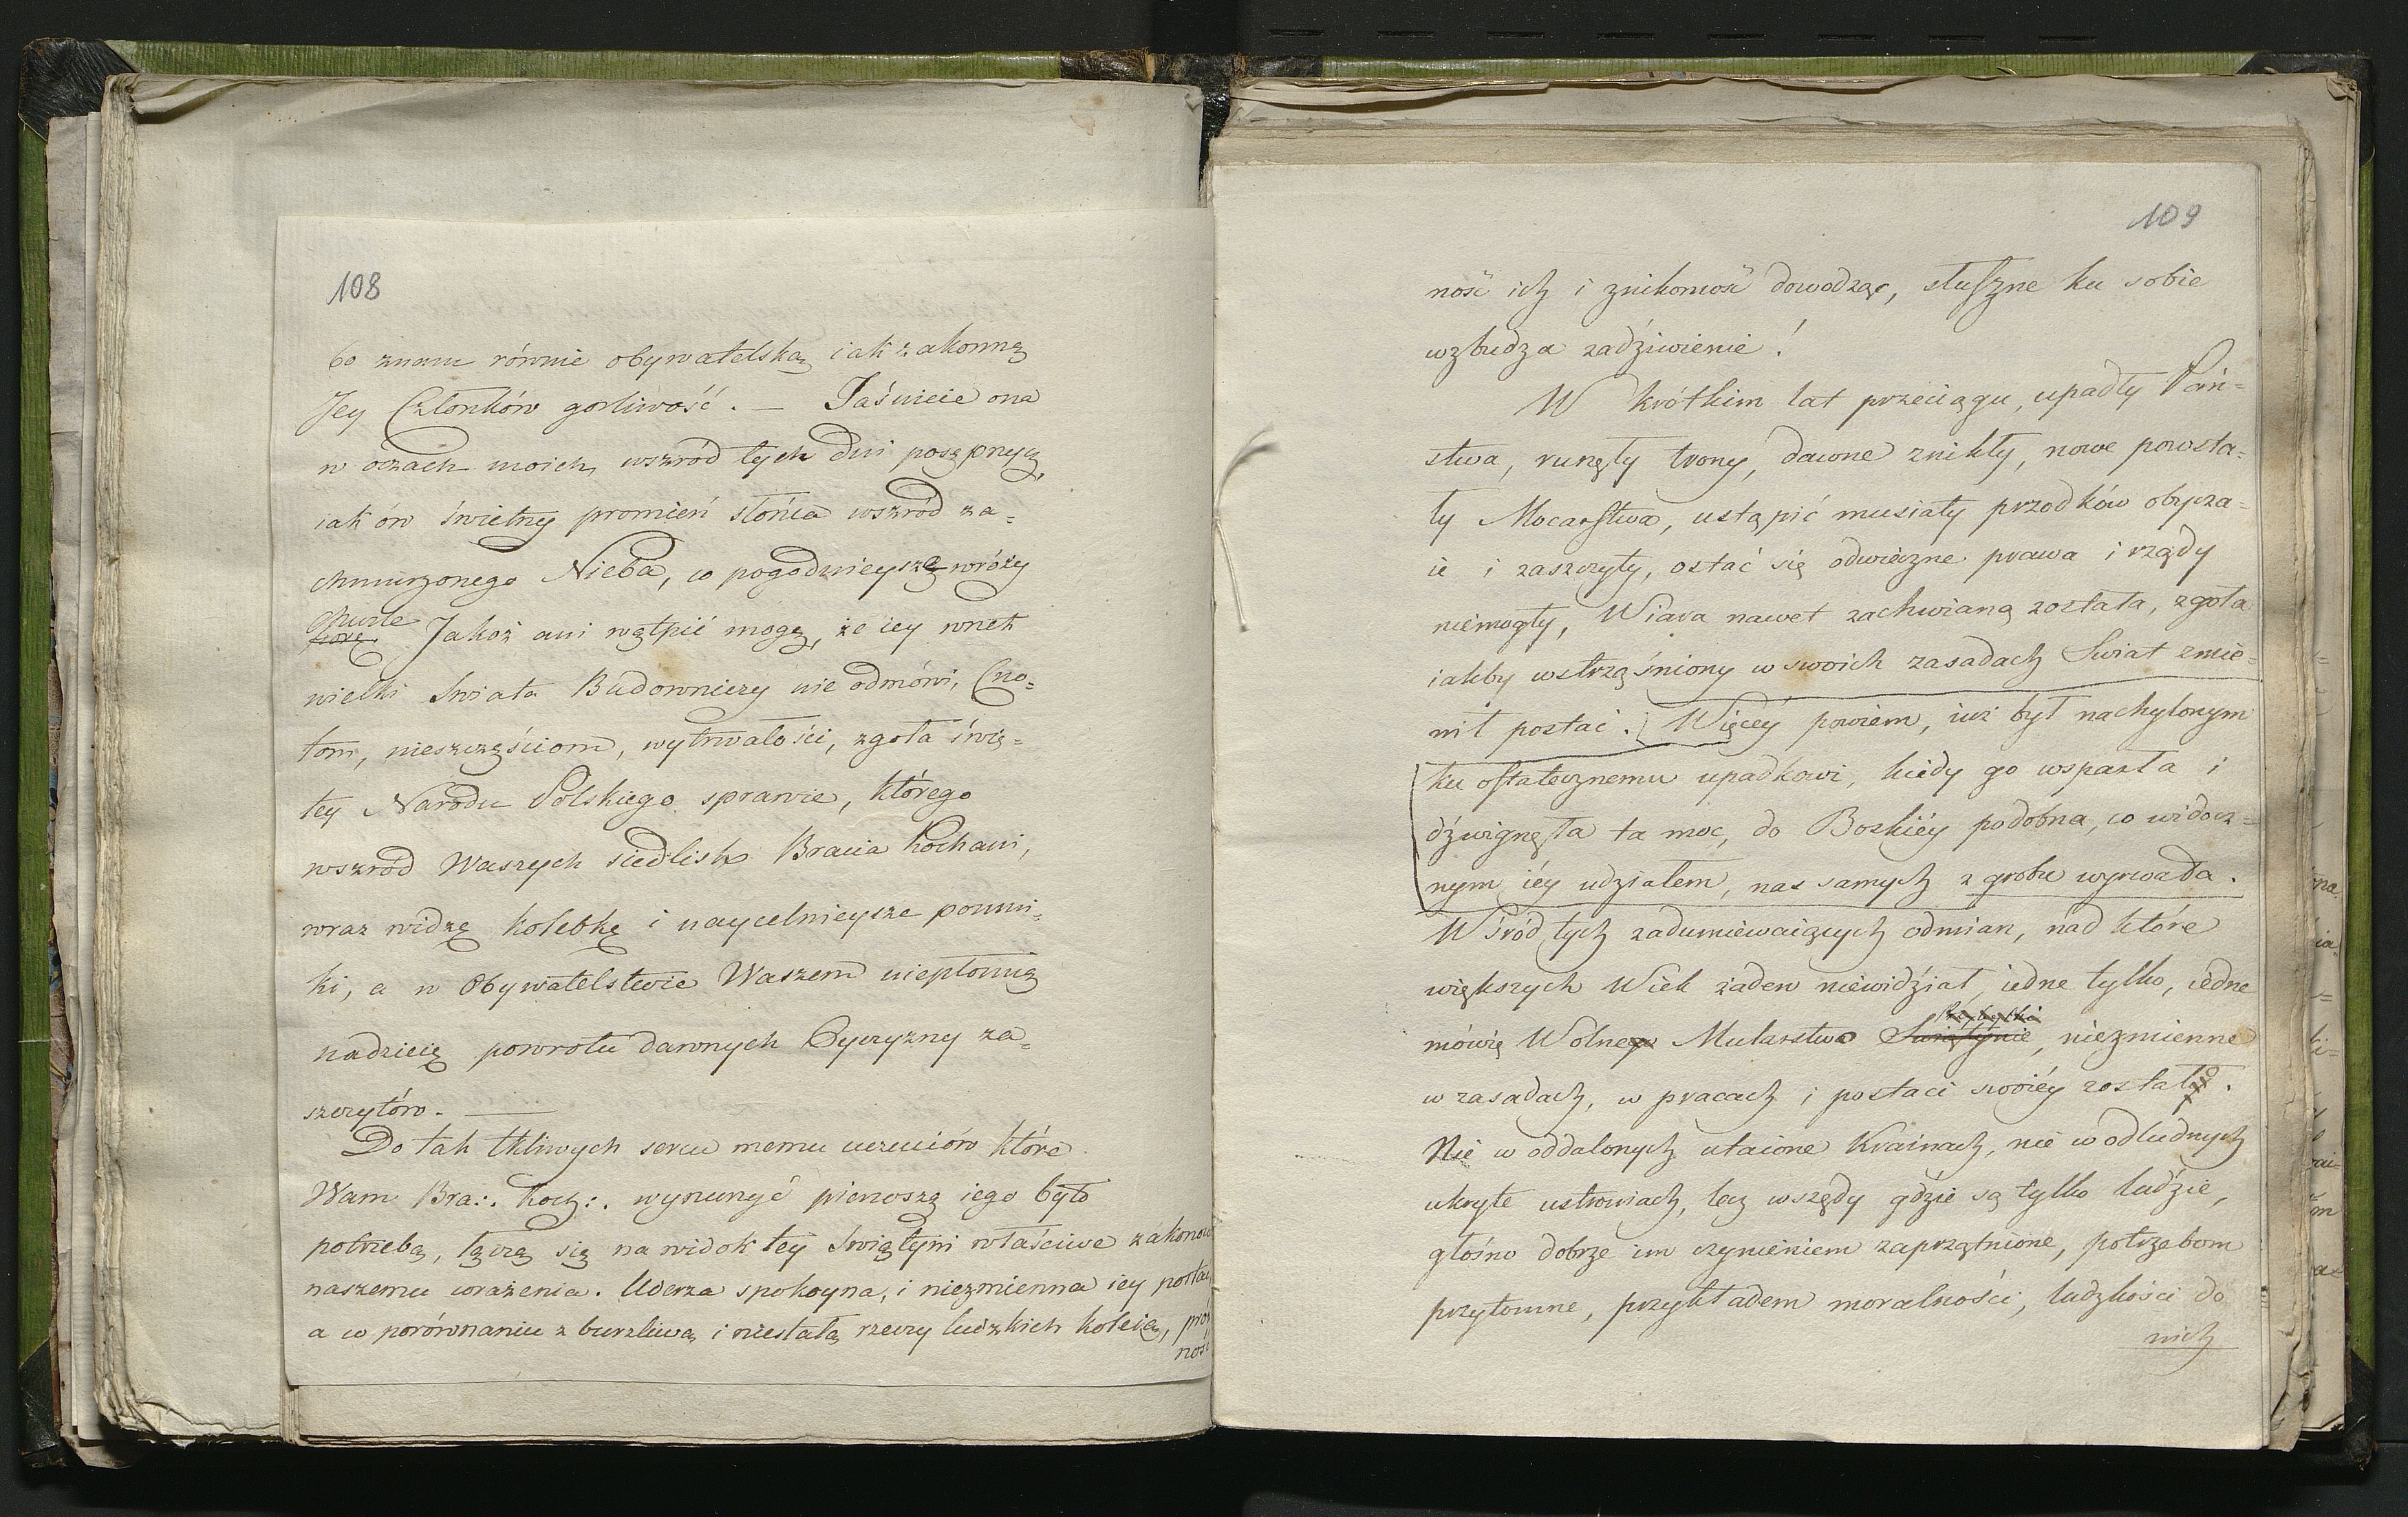 108
bo znam równie obywatelską iak zakonną
Jey Członków gorliwość. — Jaśnieie ona
w oczach moich, wszród tych dni posępnych,
iak ów świetny promień słońca wszród za=
chmurzonego Nieba, co pogodnieyszą wróży
chwile
porę Jakoż ani wątpić mogę, że iey wnet
wielki Swiata Budowniczy nie odmówi, Cno=
tom, nieszczęściom, wytrwałości, zgoła świę=
tey Narodu Polskiego sprawie, którego
wszród Waszych siedlisk Bracia Kochani,
wraz widzę kolebkę i naycelnieysze pomni=
ki, a w Obywatelstwie Waszem niepłonną
nadzieię powrotu dawnych Oyczyzny za=
szczytów. —
Do tak tkliwych sercu memu uczuciów które
Wam Bra:. Koch:. wynurzyć pierwszą iego było
potrzebą, łączą się na widok tey Swiątyni właściwe zakonowi
naszemu wrażenia. Uderza spokoyna, i niezmienna iey postać,
a w porównaniu z burzliwą i niestałą rzeczy ludzkich koleią, próż
ność
109
ność ich i znikomość dowodząc, słuszne ku sobie
wzbudza zadziwienie!
W krótkim lat przeciągu, upadły Pań=
stwa, runęły trony, dawne znikły, nowe powsta=
ły Mocarstwa, ustąpić musiały przodków obycza=
ie i zaszczyty, ostać się odwieczne prawa i rządy
niemogły, Wiara nawet zachwianą została, zgoła
iakby wstrząśniony w swoich zasadach Swiat zmie=
nił postać. Więcey powiem, iuż był nachylonym
ku ostatecznemu upadkowi, kiedy go wsparła i
dźwignęła ta moc, do Boskiéy podobna, co widocz=
nym iéy udziałem, nas samych z grobu wyrwała.
Wśród tych zadumiewaiących odmian, nad które
większych Wiek żaden niewidział, iedne tylko, iedne
Przybytki
mówię Wolnego Mularstwo Swiątynie, niezmienne
w zasadach, w pracach i postaci swoiéy zostało.
Nie w oddalonych utaione Krainach, nie w odludnych
ukryte ustroniach, lecz wszędy gdzie są tylko ludzie,
głośno dobrze im czynieniem zaprzątnione, potrzebom
przytomne, przykładem moralności, ludzkości do
nich